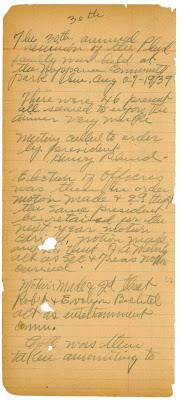 30th
The 30th annual
reunion of the Pleyd
family was held at
the Nappanee Community
park Sun. Aug 27-1939
There were 46 present
all seemed to enjoy the
dinner very much
Meeting called to order
by president
Henry
Election of Officers
was then in order
motion made & 2nd that
the same president
be retained for the
next year motion
carried. Motion made
act as Sec & treas motion
carried.
Motion made & 2nd that
Robert & Evelyn Bechtel
act as entertainment
comm.
was then
taken amounting to